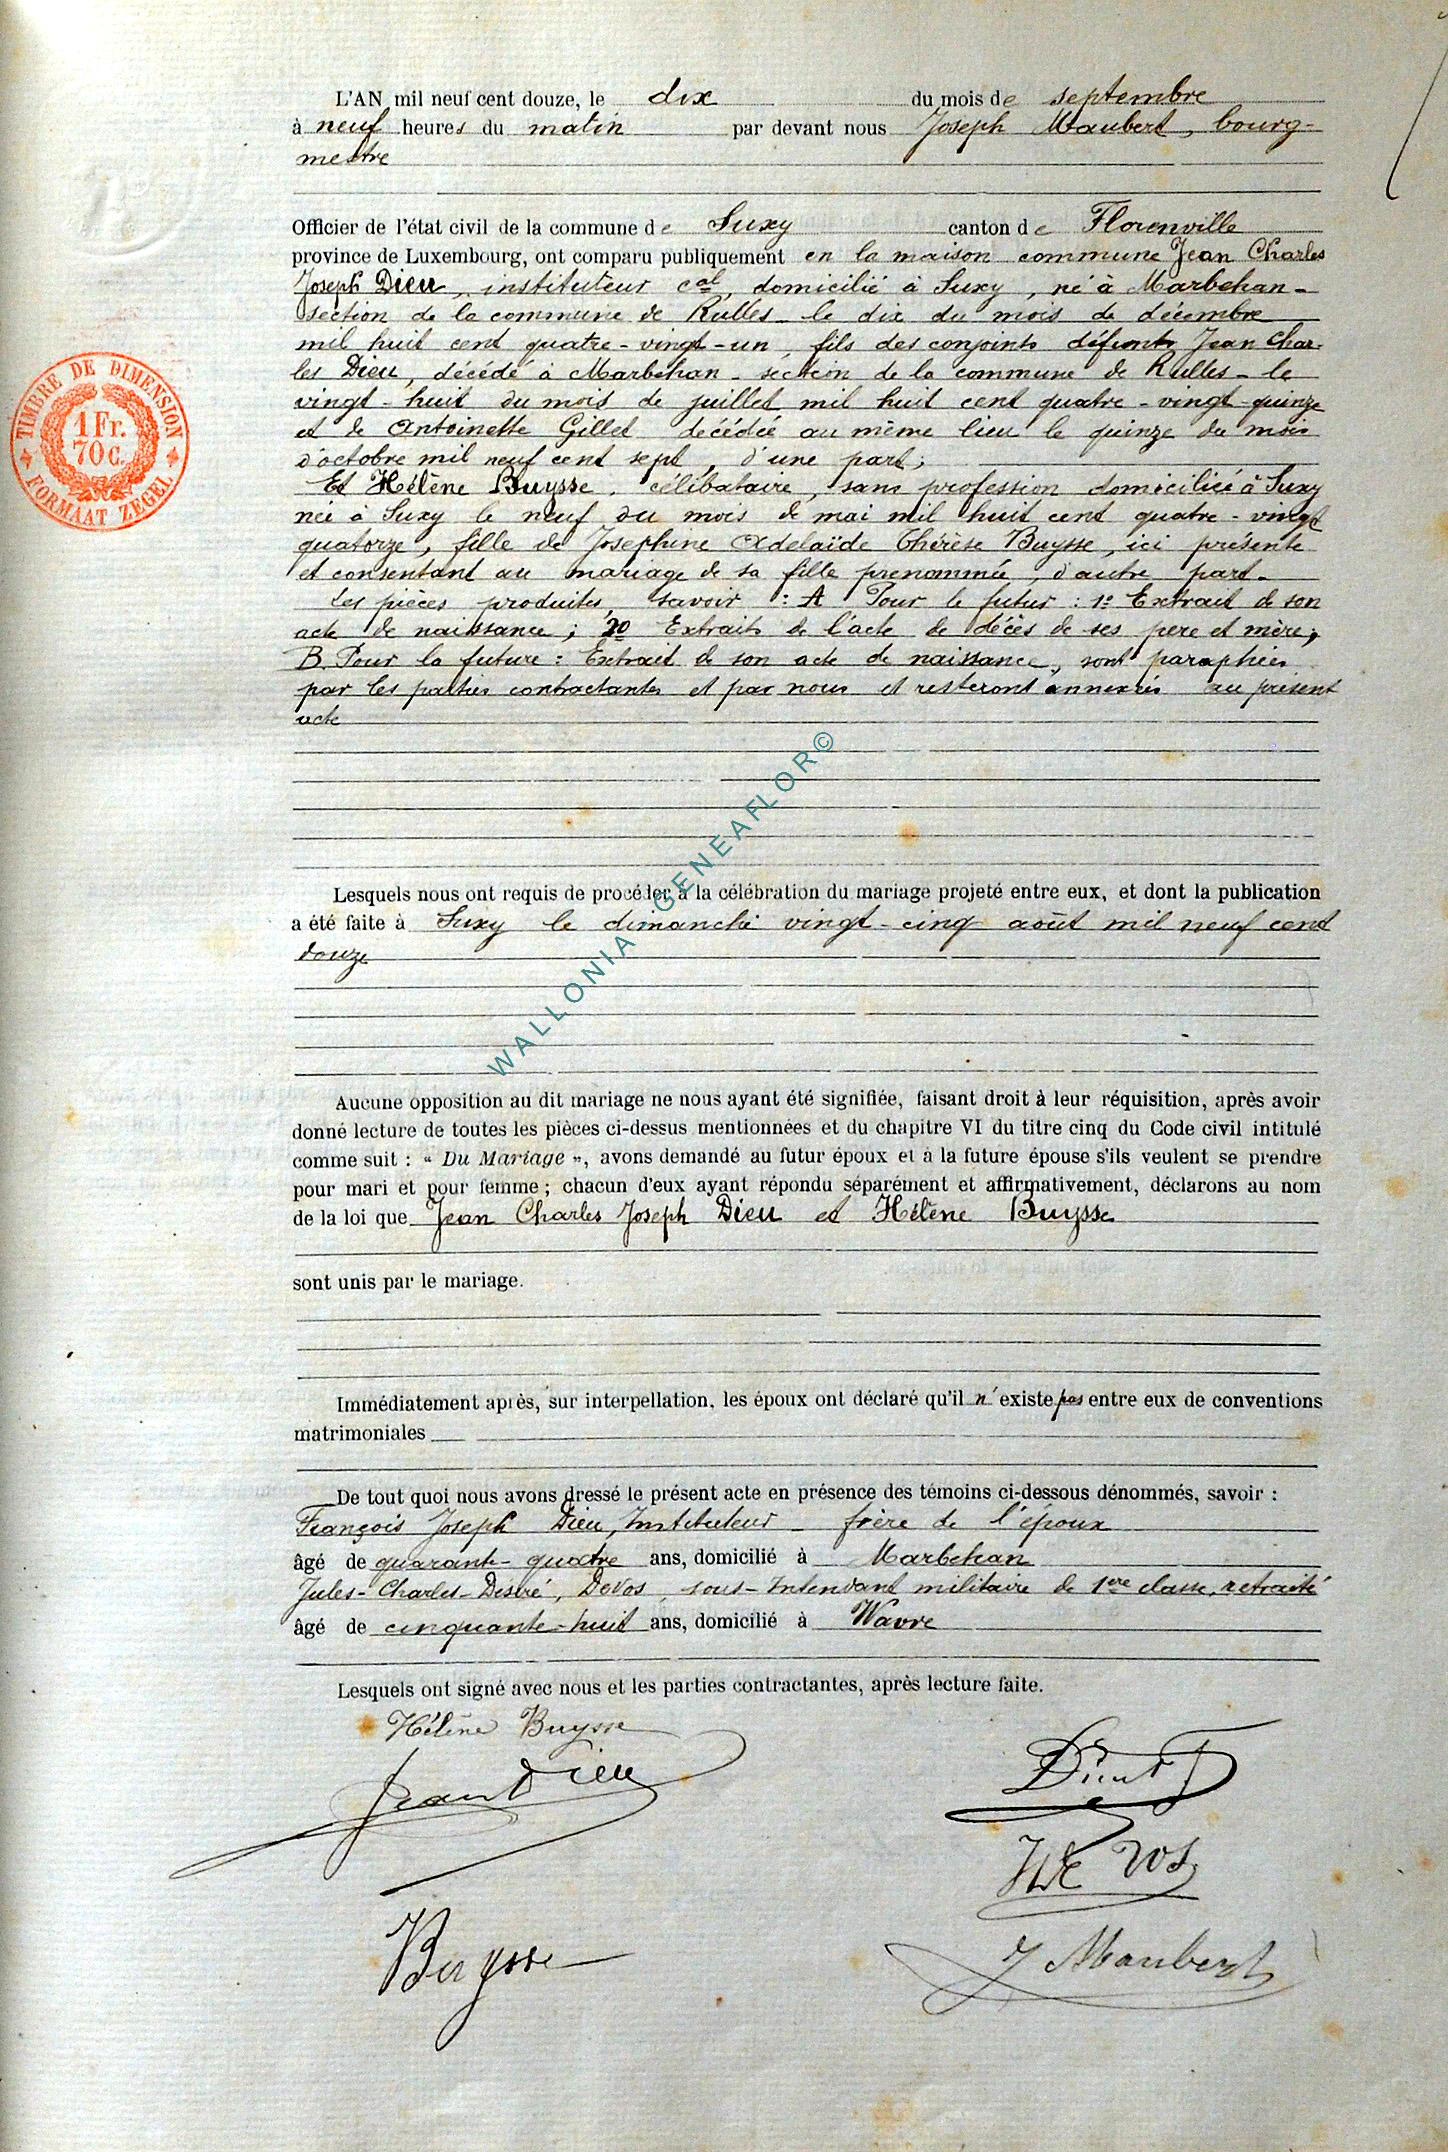 L'AN mil neuf cent douze, le dix du mois de septembre
à neuf heures du matin par devant nous Joseph Maubert, bourg-
mestre
Officier de l'état civil de la commune de Suxy canton de Florenville
province de Luxembourg, ont comparu publiquement en la maison commune Jean Charles
Joseph Dieu, instituteur cal, domicilié à Suxy, né à Marbehan -
section de la commune de Rulles - le dix du mois de décembre
mil huit cent quatre-vingt-un, fils des conjoints défunts Jean Char-
les Dieu, décédé à Marbehan - section de la commune de Rulles - le
vingt-huit du mois de juillet mil huit cent quatre-vingt-quinze
et de Antoinette Gillet décédée au même lieu le quinze du mois
d'octobre mil neuf cent sept, d'une part;
Et Hélène Buysse, célibataire, sans profession domiciliée à Suxy
née à Suxy le neuf du mois de mai mil huit cent quatre-vingt
quatorze, fille de Joséphine Adelaïde Thérèse Buysse, ici présente
et consentant au mariage de sa fille prénommée, d'autre part.
Les pièces produites, savoir : A Pour le futur : 1º Extrait de son
acte de naissance ; 2º Extraits de l'acte de décès de ses père et mère;
B. Pour la future : Extrait de son acte de naissance, sont paraphées
par les parties contractantes et par nous et resteront annexées au présent
acte
Lesquels nous ont requis de procéder à la célébration du mariage projeté entre eux, et dont la publication
a été faite à Suxy le dimanche vingt-cinq août mil neuf cent
douze
Aucune opposition au dit mariage ne nous ayant été signifiée, faisant droit à leur réquisition, après avoir
donné lecture de toutes les pièces ci-dessus mentionnées et du chapitre VI du titre cinq du Code civil intitulé
comme suit : « Du Mariage », avons demandé au futur époux et à la future épouse s'ils veulent se prendre
pour mari et pour femme ; chacun d'eux ayant répondu séparément et affirmativement, déclarons au nom
de la loi que Jean Charles Joseph Dieu et Hélène Buysse
sont unis par le mariage.
Immédiatement après, sur interpellation, les époux ont déclaré qu'il n'existe pas entre eux de conventions
matrimoniales
De tout quoi nous avons dressé le présent acte en présence des témoins ci-dessous dénommés, savoir :
François Joseph Dieu, Instituteur - frère de l'époux
âgé de quarante-quatre ans, domicilié à Marbehan
Jules-Charles-Désiré, DeVos, sous-Intendant militaire de 1ere classe, retraité
âgé de cinquante-huit ans, domicilié à Wavre
Lesquels ont signé avec nous et les parties contractantes, après lecture faite.
Hélène Buysse
Jean Dieu
Buysse
De Vos
J Maubert
TIMBRE DE DIMENSION
1 Fr.
70 C.
FORMAAT ZEGEL
WALLONIA GENEAFLOR©